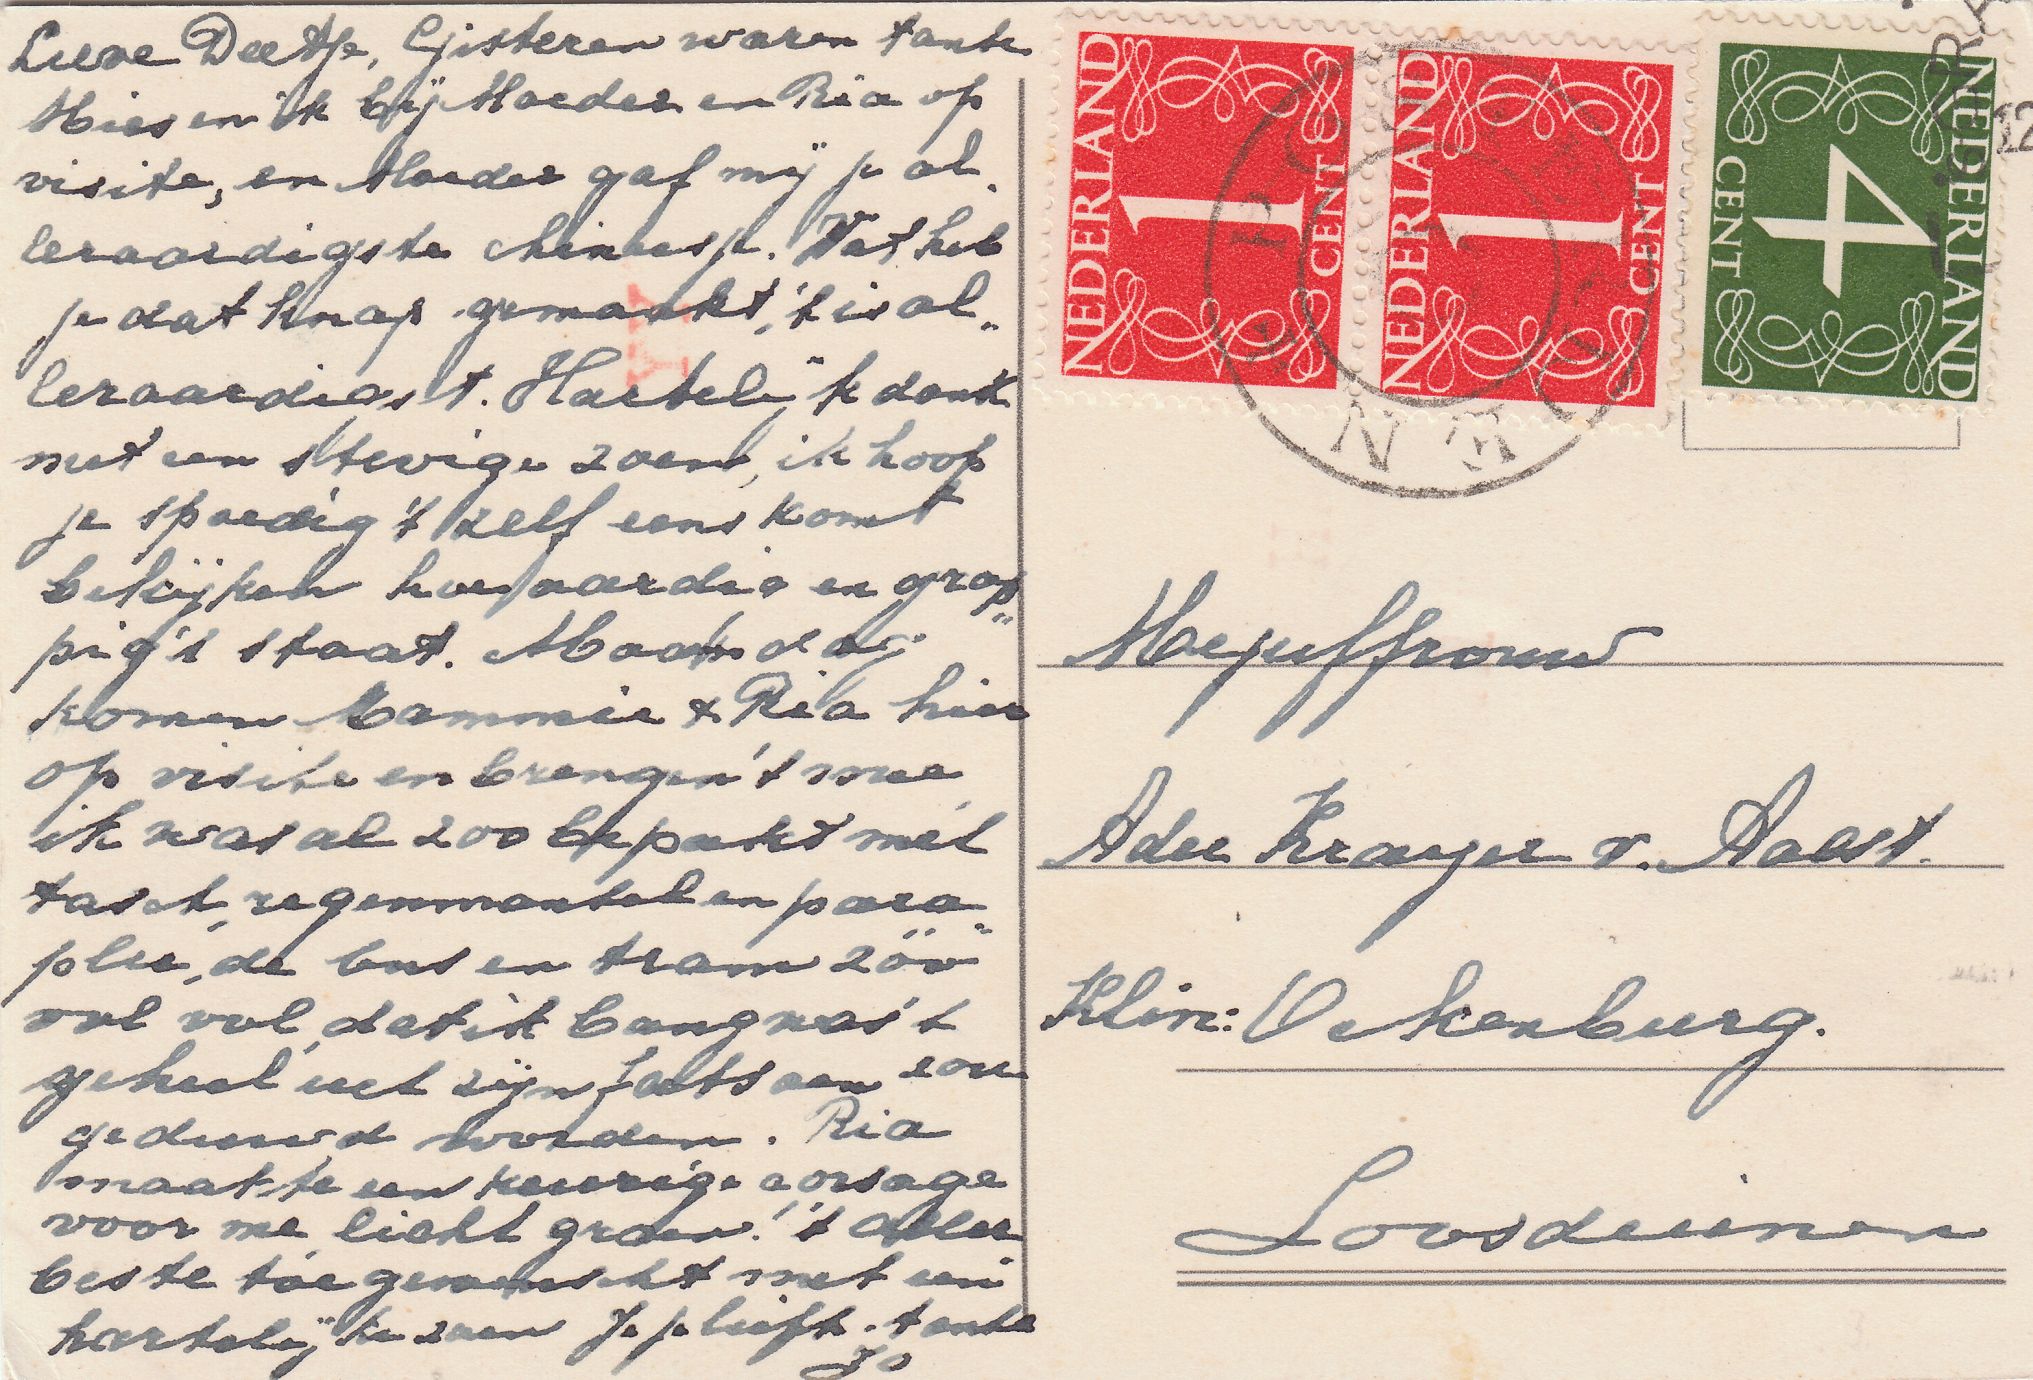 Lieve Deetje, Gisteren waren tante
Mies en ik bij Moeder en Ria op
visite, en Moeder gaf mij je al-
leraardigste chineesje. Wat heb
je dat knap gemaakt, 't is al-
leraardigst. Hartelijk dank
met een stevige zoen, ik hoop
je spoedig 't zelf eens komt
bekijken hoe aardig en grap-
pig 't staat. Maandag
komen Mammie & Ria hier
op visite en brengen 't mee,
ik was al zoo bepakt met
tasch, regenmantel en para-
plu, de bus en tram zóó
vol vol, dat ik bang was 't
geheel uit zijn fatsoen zou
geduwd worden. Ria
maakte een keurige corsage
voor me, licht groen! 't Aller
beste toegewenscht met een
hartelijke zoen Je je liefh. tante
Jo
NEDERLAND
1
CENT
NEDERLAND
1
CENT
NEDERLAND
4
CENT
12
Mejuffrouw
Adee Krayer v. Aalst.
Klin: Ockenburg.
Loosduinen